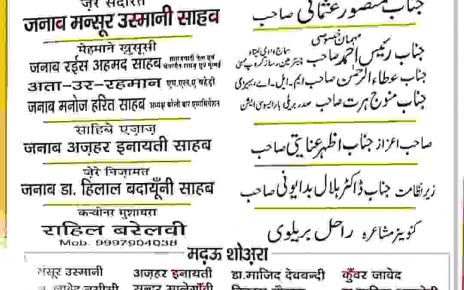 ज़ेरे सदारत
जनाब मन्सूर उस्मानी साहब
मेहमाने खुसूसी
जनाब रईस अहमद साहब
अता-उर-रहमान एम.एल.ए बहेड़ी
जनाब मनोज हरित साहब अध्यक्ष बरेली बार एसोसिएशन
साहिबे एज़ाज़
जनाब अज़हर इनायती साहब
ज़ेरे निज़ामत
जनाब डा. हिलाल बदायूँनी साहब
कन्वीनर मुशायरा
राहिल बरेलवी
Mob. 9997904038
جناب منصور عثمانی صاحب
مہمان خصوصی
جناب رئیس احمد صاحب
جناب عطاء الرحمن صاحب ایم۔ایل۔اے، بہیڑی
جناب منوج ہرت صاحب صدر بریلی بار ایسوسی ایشن
صاحب اعزاز جناب اظہر عنایتی صاحب
زیر نظامت جناب ڈاکٹر ہلال بدایونی صاحب
کنوینر مشاعرہ راحل بریلوی
मदऊ शोअ़रा
मंसूर उस्मानी अज़हर इनायती डा.माजिद देवबन्दी कुँवर जावेद